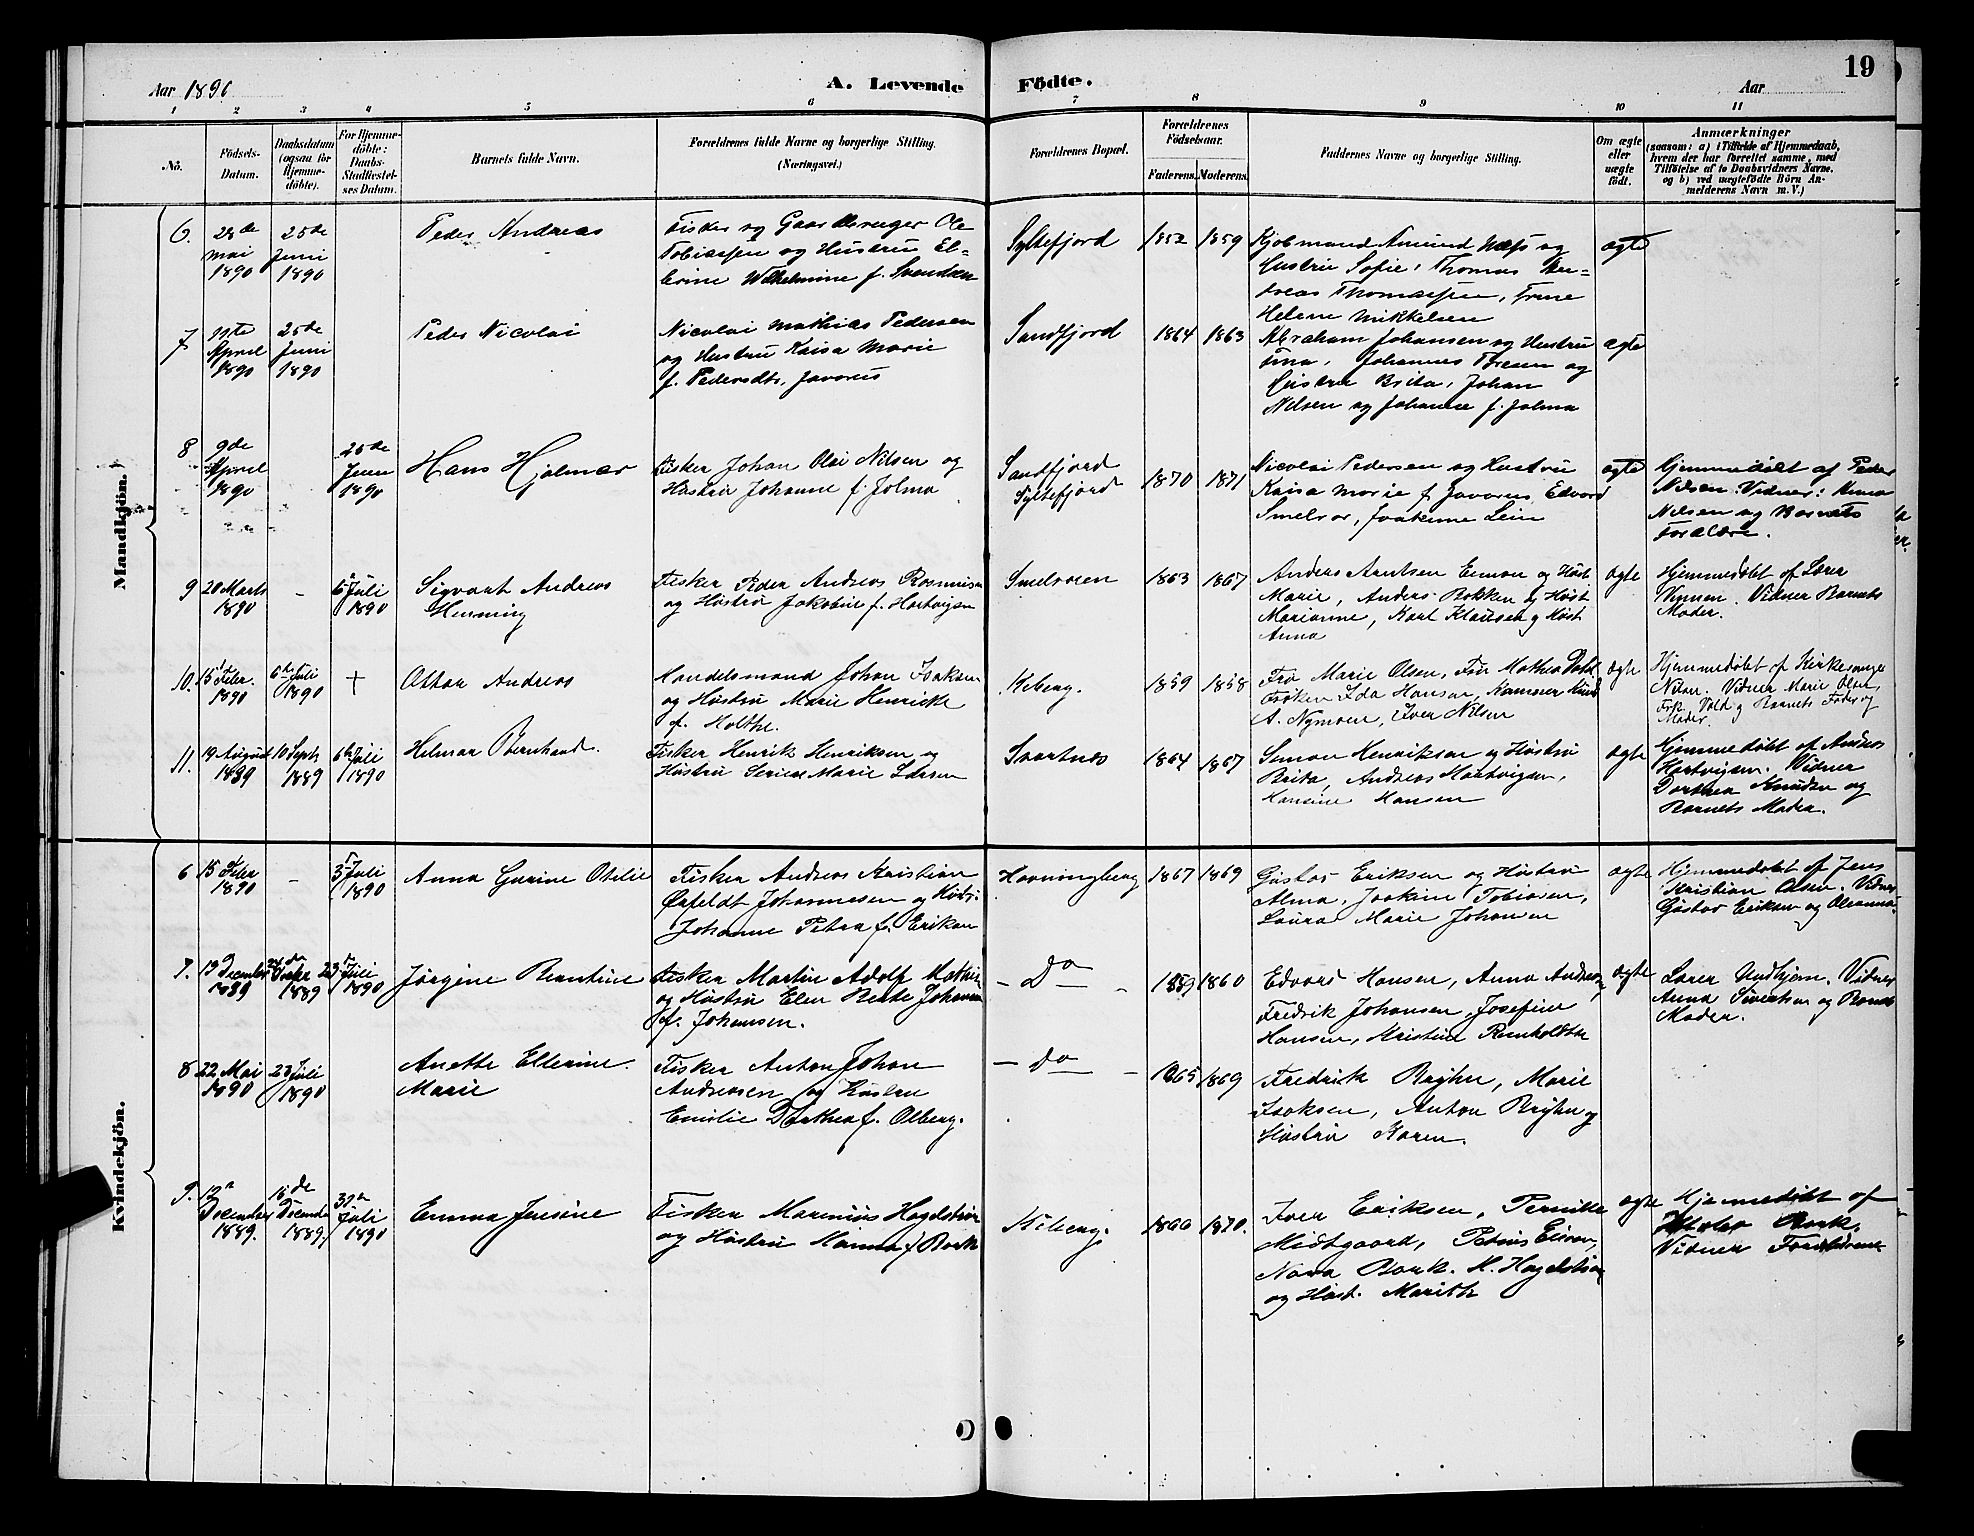 Aar 1890
A. Levende
Födte.
Aar
19
1
2
3
4
5
6
7
8
9
10
11
No.
Födsels-
Datum.
Daabsdatum
(ogsaa for
Hjemme-
döbte).
For Hjemme-
döbte:
Daabs-
Stadfæstel-
ses Datum.
Barnets fulde Navn.
Forældrenes fulde Navne og borgerlige Stilling.
(Næringsvei.)
Forældrenes Bopæl.
Forældrenes
Födselsaar.
Faderens.
Moderens.
Faddernes Navne og borgerlige Stilling.
Om ægte
eller
uægte
födt.
Anmærkninger
(saasom: a) i Tilfælde af Hjemmedaab,
hvem der har forrettet samme, med
Tilföielse af to Daabsvidners Navne,
og b) ved uægtefödte Börn An-
melderens Navn m. V.)
Mandkjön.
6.
mai
1890
25de
Juni
1890
Peder Andreas
Fisker og Gaardbruger Ole
Tobiassen og Hustru El-
Wilhelmine f. Svendsen
Syltefjord
1852
1859
Kjøbmand Amund Næss og
Hustru Sofie, Thomas An-
dreas Thomassen, Trine
Helene Mikkelsen
ægte
7
April
1890
25de
Juni
1890
Peder Nicolai
Nicolai Mathias Pedersen
og Hustru Kaisa Marie
f. Pedersdtr. Javorus
Sandfjord
1864
1863
Abraham Johansen og Hustru
Tina, Johannes og
Hustru Brita, Johan
Nilsen og Johanne f. Jolma
ægte
8
9de
April
1890
25de
Juni
1890
Hans Hjalmar
Fisker Johan Olai Nilsen og
Hustru Johanne f. Jolma
Sandfjord
Syltefjord
1870
1871
Nicolai Pedersen og Hustru
Kaisa Marie f. Javorus Edvard
Smelror,
ægte
Hjemmedøbt af Peder
Nilsen. Vidner: Anna
Nilsen og Barnets
Forældre.
9
20 Marts
1890
-
6 Juli
1890
Sigvart Andreas
Henning
Fisker Peder Andreas Rasmussen
og Hustru Jakobine f. Hartvigsen
Smelroren
1863
1867
Anders Arntsen og Hust
Marie, Anders Bokken og Hust
Marianne, Karl Klausen og Hust
Anna
ægte
Hjemmedøbt af Lærer
Vidner Barnets
Moder.
10.
15 Febr.
1890
6 Juli
1890
+
Ottar Andreas
Handelsmand Johan Isaksen
og Hustru Marie Henrikke
f. Holthe.
Kiberg.
1859
1858
Fru Marie Olsen, Fru Mathea Dahl
Frøken Ida Hansen,
A. Nymoen, Iver Nilsen
ægte
Hjemmedøbt af Kirkesanger
Nilsen. Vidner Marie Olsen,
Frk. og Barnets Fader og
Moder.
11.
19 August
1889
10 Septr
1889
6 Juli
1890
Helmar Bernhard.
Fisker Henrik Henriksen og
Hustru Serine Marie Larsen
Svartnæs
1864
1867
Simon Henriksen og Hustru
Brita, Andreas Hartvigsen,
Hansine Hansen
ægte
Hjemmedøbt af Andreas
Hartvigsen. Vidner
Dorthea Knudsen og
Barnets Moder.
Kvindekjön.
6
15 Febr
1890
-
3 Juli
1890
Anna Gurine Otelie
Fisker Andreas Kristian
Johannesen og Hust.
Johanne Petra f. Eriksen
Havningberg
1867
1869
Gustav Eriksen og Hustru
Alma, Joakim Tobiasen,
Laura Marie Johansen
ægte
Hjemmedøbt af Jens
Kristian Olsen. Vidner
Gustav Eriksen og Oleanna
7.
19 December
1889
1889
23 Juli
1890
Jørgine Berntine
Fisker Martin Adolf
og Hustru Elen Bette Johanna
f. Johansen.
- Do -
1859
1860
Edvard Hansen, Anna Andersen,
Fredrik Johansen, Josefine
Hansen, Kristine Reinholdtsen
ægte
Lærer Vidner
Anna Sivertsen og Barnets
Moder.
8
22 Mai
1890
23 Juli
1890
Anette Ellerine
Marie
Fisker Anton Johan
Andreassen og Hustru
Emilie Dorthea f. Olberg.
- Do -
1865
1869
Fredrik Bryhn, Marie
Isaksen, Anton Bryhn og
Hustru Karen.
9.
12
December
1889.
15de
December
1889
Juli
1890
Emma Jensine
Fisker Marenius Hagelstrøm
og Hustru Hanna f. Bork
Kiberg.
1866
1870.
Iver Eriksen, Pernille
Midtgaard, Petrus
Nora Bork. H. Hagelstrøm
og Hust. Marith
ægte
Hjemmedøbt af
Bork.
Vidner Forældrene